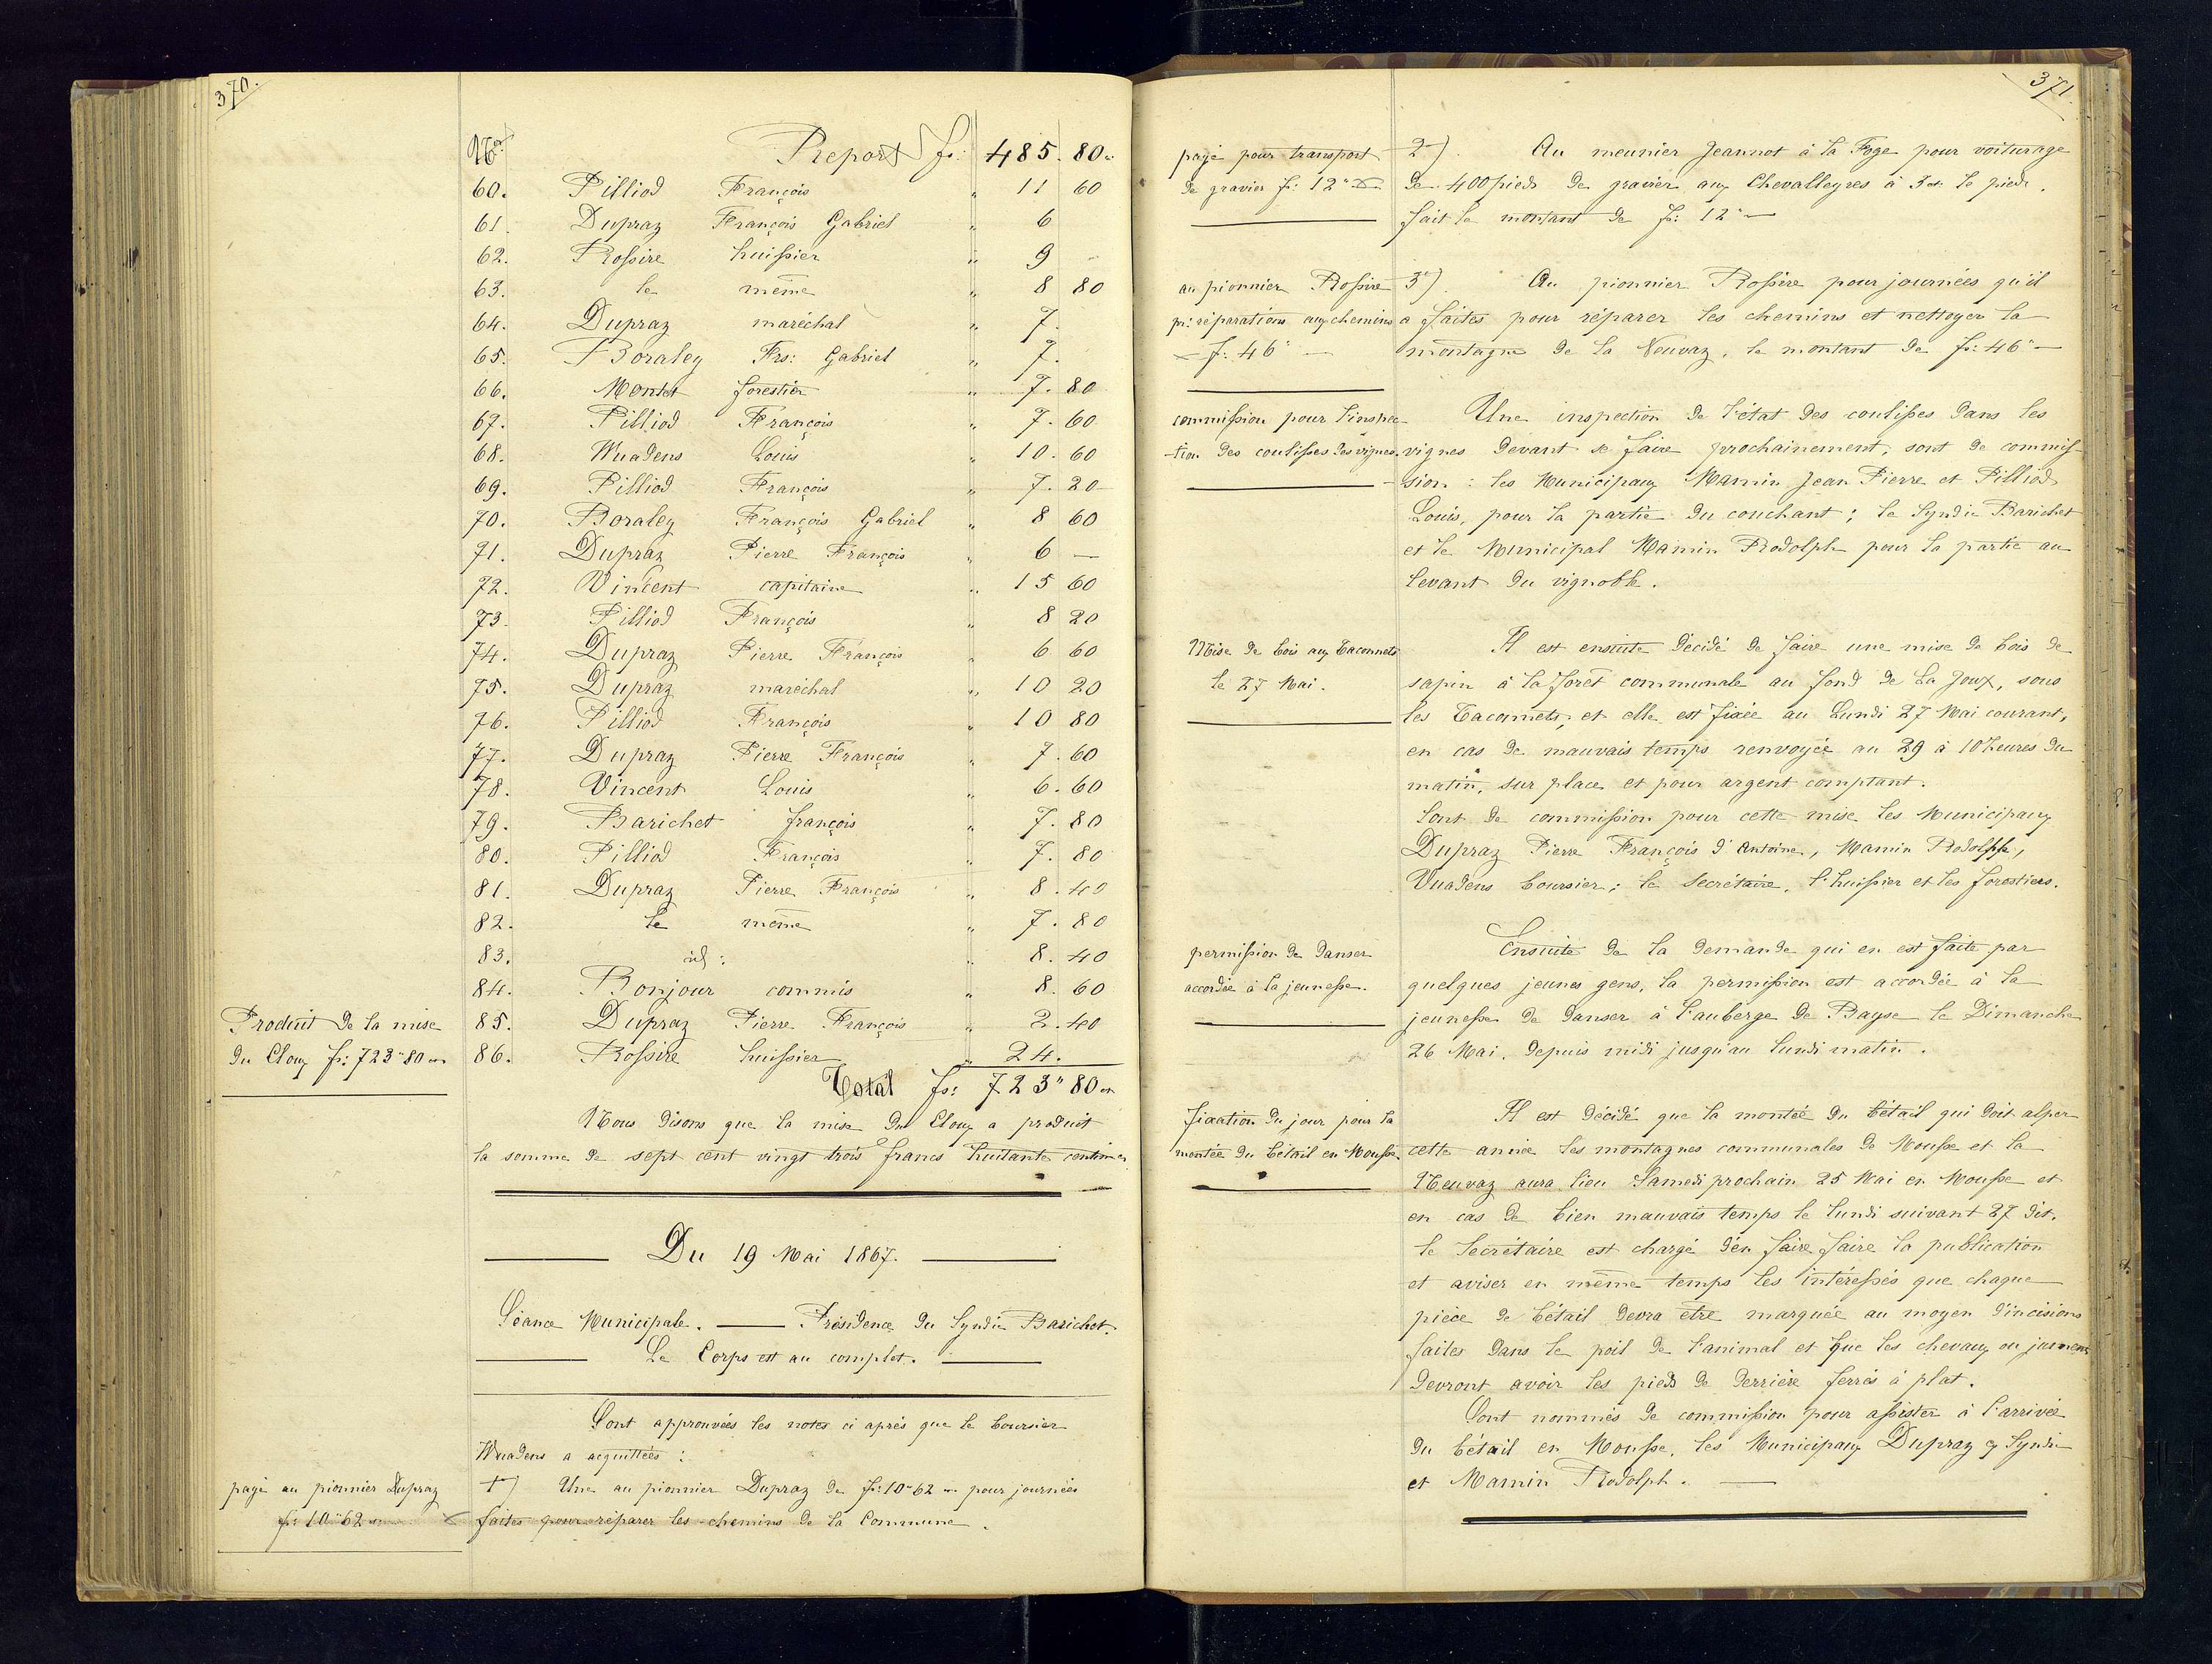 370.
Nos Report fr: 485. 80 c
60. Pilliod François " 11 60
61 Dupraz François Gabriel " 6
62. Rossire huissier " 9 -
63. le même " 8 80
64. Dupraz maréchal " 7.
65. Boraley Frs: Gabriel " 7.
66. Montet forestier " 7. 80
67. Pilliod François " 7. 60
68. Wuadens Louis " 10. 60
69. Pilliod François " 7. 20
70. Boraley François Gabriel " 8 60
71. Dupraz Pierre François " 6 —
72. Vincent capitaine " 15 60
73. Pilliod François " 8 20
74. Dupraz Pierre François " 6 60
75. Dupraz maréchal " 10 20
76. Pilliod François " 10 80
77. Dupraz Pierre François " 7. 60
78. Vincent Louis " 6. 60
79. Barichet françois " 7. 80
80. Pilliod François " 7. 80
81. Dupraz Pierre François " 8. 40
82. le même " 7. 80
83. id: " 8. 40
84. Bonjour commis " 8. 60
Produit de la mise
du Clouz fr: 723"80 cs
85. Dupraz Pierre François " 2. 40
86. Rossire huissier " 24.
Total fs: 723" 80 cs
Nous disons que la mise du Clouz a produit
la somme de sept cent vingt trois francs huitante centimes
Du 19 Mai 1867.
Séance Municipale. — Présidence du Syndic Barichet.
Le Corps est au complet.
Sont approuvées les notes ci après que le boursier
Wuadens a acquittées :
payé au pionnier Dupraz
fr: 10"62
1°) Une au pionnier Dupraz de fr: 10"62 pour journées
faites pour réparer les chemins de la Commune.
371.
payé pour transport
de gravier fr: 12"
2°) Au meunier Jeannot à la Foge pour voiturage
de 400 pieds de gravier aux Chevalleyres à 3 ct. le pied,
fait le montant de fr: 12"—
au pionnier Rossire
pr: réparations aux chemins
fr: 46"—
3°) Au pionnier Rossire pour journées qu'il
a faites pour réparer les chemins et nettoyer la
montagne de la Neuvaz, le montant de fr: 46"—
commission pour l'inspec-
-tion des coulisses des vignes.
Une inspection de l'état des coulisses dans les
vignes devant se faire prochainement, sont de commis-
-sion : les Municipaux Mamin Jean Pierre et Pilliod
Louis, pour la partie du couchant ; le Syndic Barichet
et le Municipal Mamin Rodolph pour la partie au
levant du vignoble.
Mise de bois aux Taconnets
le 27 Mai.
Il est ensuite décidé de faire une mise de bois de
sapin à la forêt communale au fond de la Joux, sous
les Taconnets, et elle est fixée au Lundi 27 Mai courant,
en cas de mauvais temps renvoyée au 29 à 10 heures du
matin, sur place et pour argent comptant.
Sont de commission pour cette mise les Municipaux
Dupraz Pierre François d'Antoine, Mamin Rodolphe,
Vuadens boursier ; le Secrétaire, l'huissier et les forestiers.
permission de danser
accordée à la jeunesse.
Ensuite de la demande qui en est faite par
quelques jeunes gens, la permission est accordée à la
jeunesse de danser à l'auberge de Bayse le Dimanche
26 Mai, depuis midi jusqu'au lundi matin.
fixation du jour pour la
montée du bétail en Mousse.
Il est décidé que la montée du bétail qui doit alper
cette année les montagnes communales de Mousse et la
Neuvaz aura lieu Samedi prochain 25 Mai en Mousse et
en cas de bien mauvais temps le lundi suivant 27 dit.
le Secrétaire est chargé d'en faire faire la publication
et aviser en même temps les intéressés que chaque
pièce de bétail devra être marquée au moyen d'incisions
faites dans le poil de l'animal et que les chevaux ou jumens
devront avoir les pieds de derrière ferrés à plat.
Sont nommés de commission pour assister à l'arrivée
du bétail en Mousse, les Municipaux Dupraz Syndic
et Mamin Rodolph.